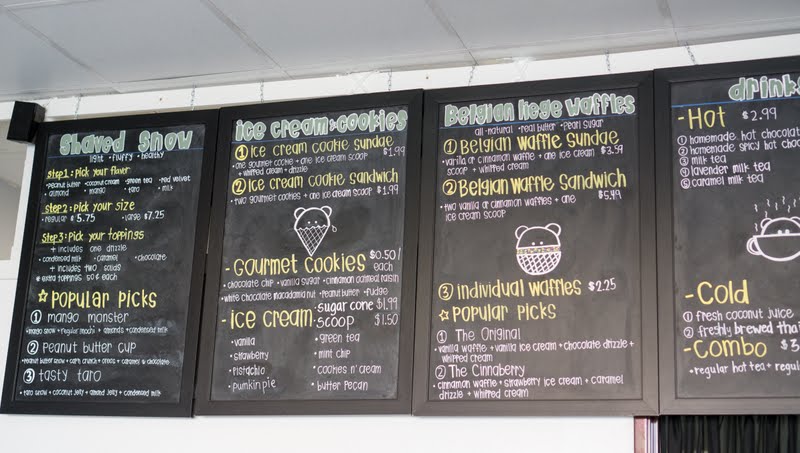 Shaved Snow
light • fluffy • healthy
Step 1: Pick your flavor
•peanut butter •coconut cream •green tea •red velvet
•almond •mango •taro •milk
Step 2: Pick your size
•regular $5.75 •large $7.25
Step 3: Pick your toppings
+ includes one drizzle
•condensed milk •caramel •chocolate
+ includes two solids
* extra toppings 50¢ each
☆ Popular Picks
① mango monster
mango snow + regular mochi + almonds + condensed milk
② Peanut butter cup
peanut butter snow + capn crunch + oreos + caramel & chocolate
③ tasty taro
taro snow + coconut jelly + almond jelly + condensed milk
ice cream & cookies
① Ice cream cookie sundae
one gourmet cookie + one ice cream scoop $1.99
+ whipped cream + drizzle
② Ice cream cookie sandwich
two gourmet cookies + one ice cream scoop $1.99
- Gourmet Cookies $0.50/
each
chocolate chip •vanilla sugar •cinnamon oatmeal raisin
•white chocolate macadamia nut •peanut butter •fudge
- ice cream •sugar cone $1.99
•scoop $1.50
•vanilla •green tea
•strawberry •mint chip
•pistachio •cookies n' cream
•pumkin pie •butter pecan
Belgian liege waffles
all-natural •real butter •pearl sugar
① Belgian Waffle Sundae
vanilla or cinnamon waffle + one ice cream $3.59
scoop + whipped cream + drizzle
② Belgian Waffle Sandwich
two vanilla or cinnamon waffles + one $5.49
ice cream scoop
③ individual waffles $2.25
☆ Popular Picks
① The Original
•vanilla waffle + vanilla ice cream + chocolate drizzle +
whipped cream
② The Cinnaberry
•cinnamon waffle + strawberry ice cream + caramel
drizzle + whipped cream
drinks
- Hot $2.99
① homemade hot chocolat
② homemade spicy hot choc
③ milk tea
④ lavender milk tea
⑤ caramel milk tea
- Cold
① fresh coconut juice
② freshly brewed thai
- Combo $3.
•regular hot tea + regul